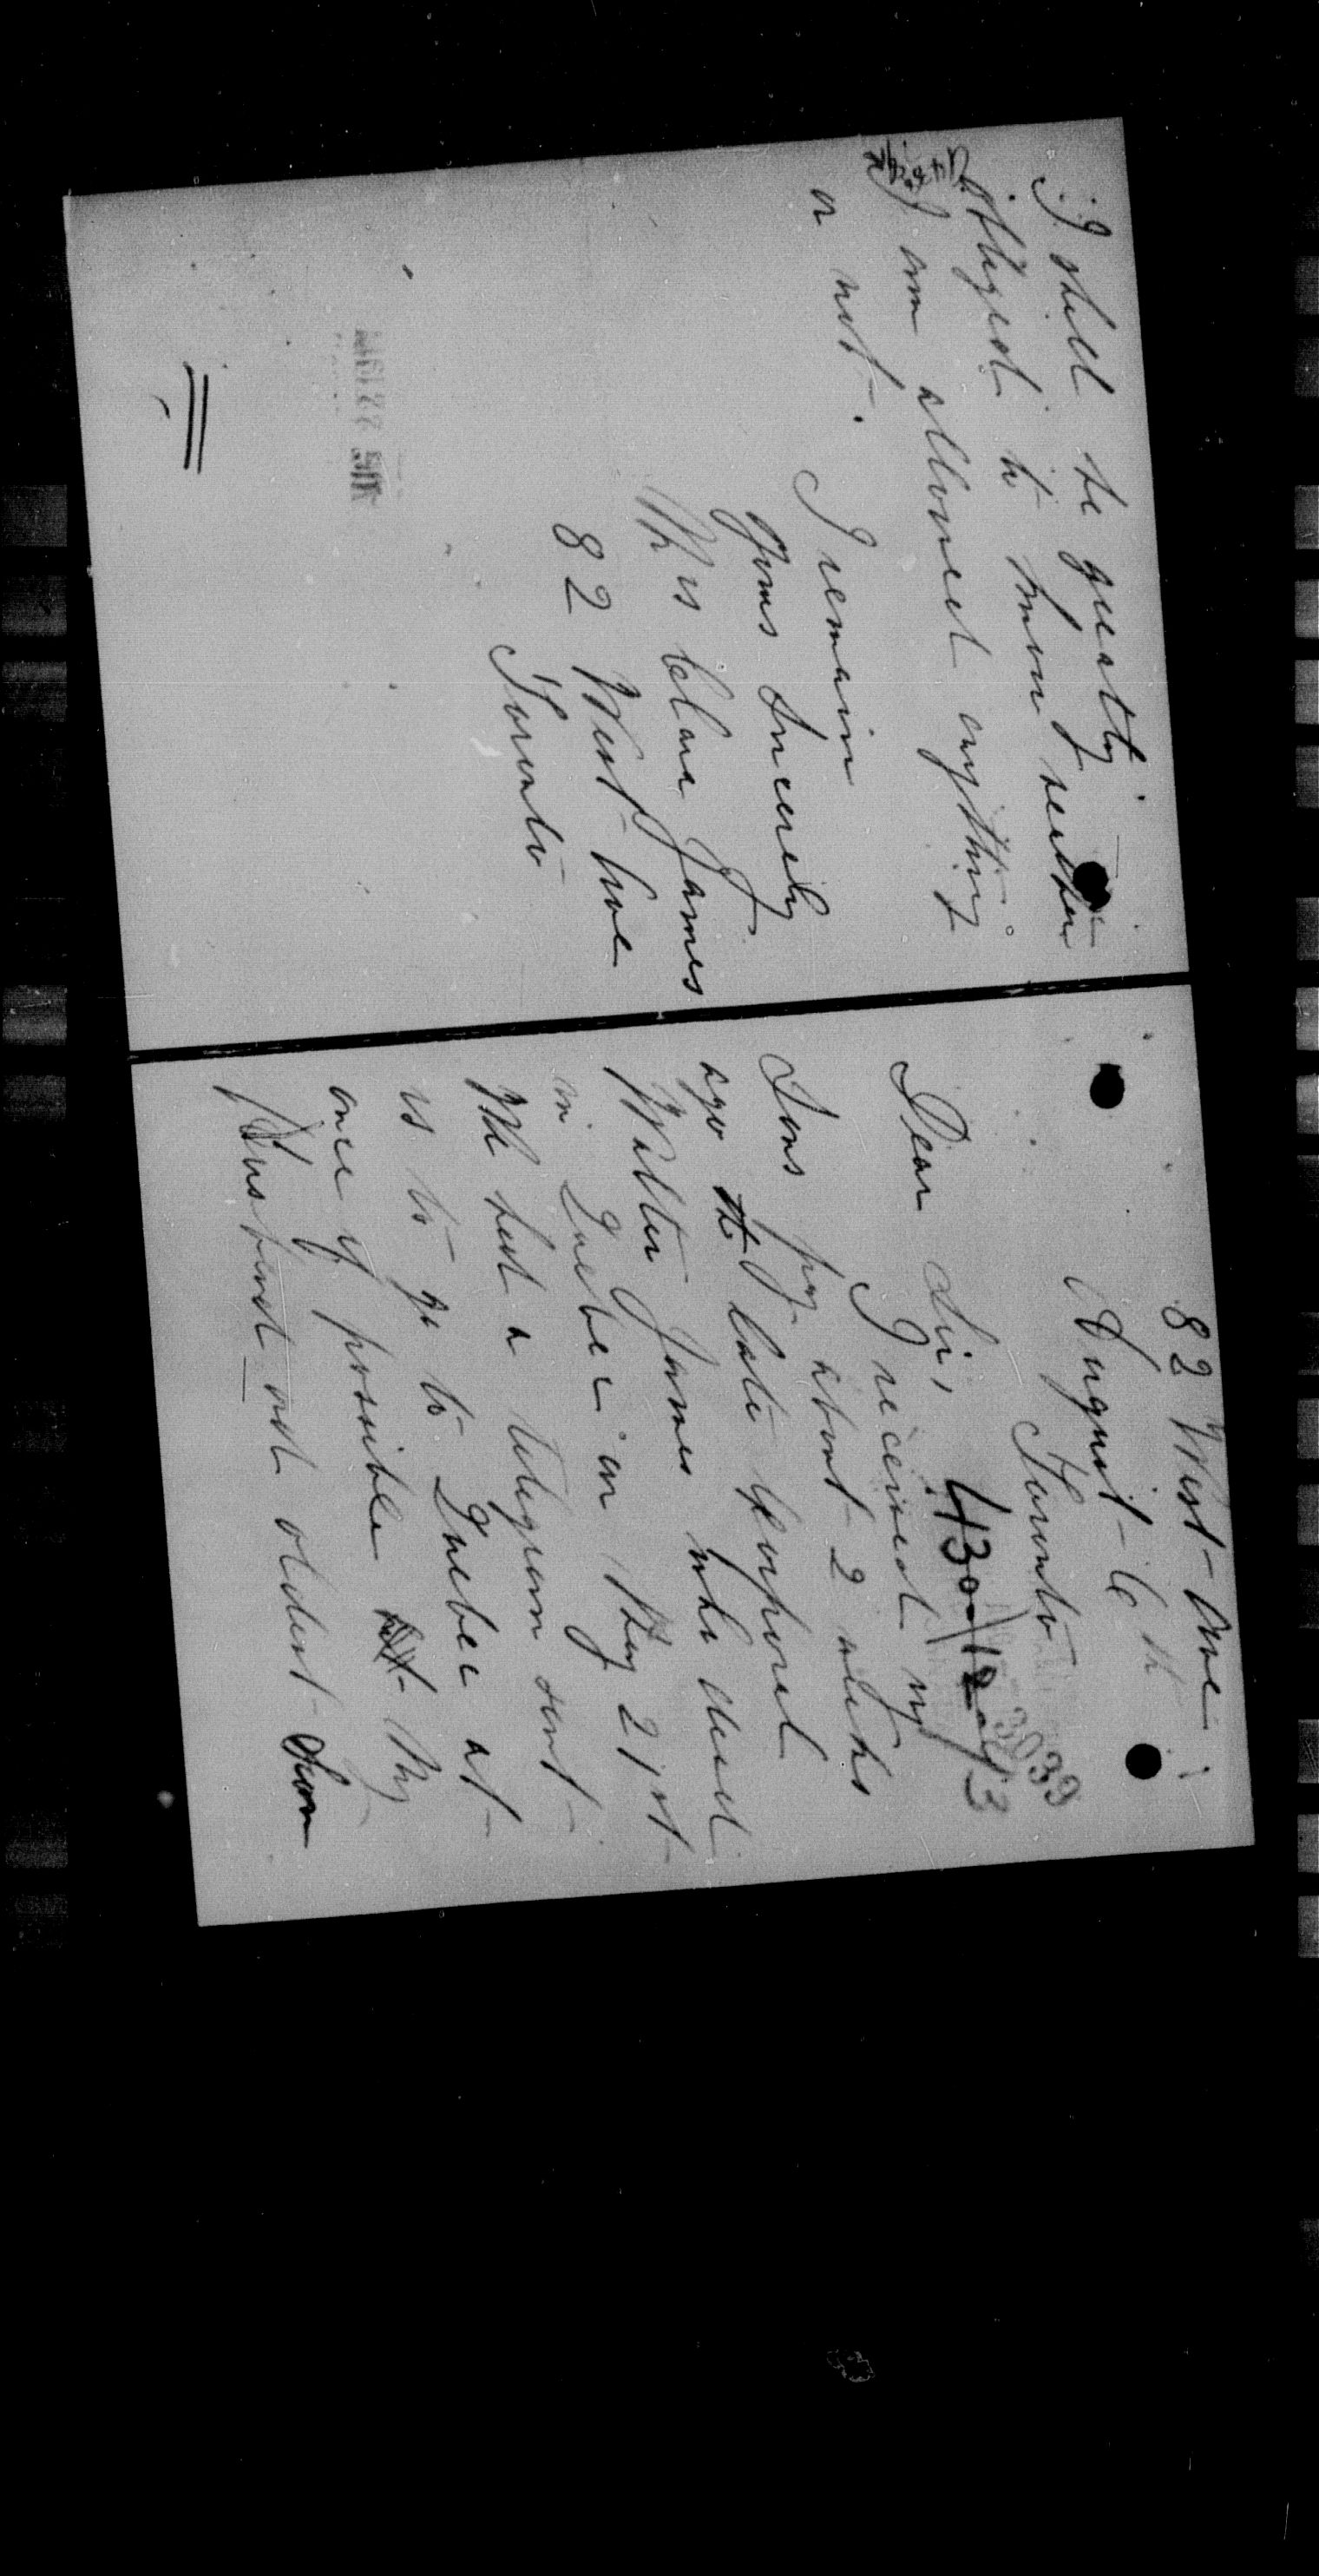 82 West Ave
August 6th
Toronto
3039
430-12-aug 3
Dear Sir,
I received my
Sons pay about 2 weeks
ago the late Corporal
Walter James who died
in Quebec on May 21st
We had a telegram sent
us to go to Quebec at
once if possible My
Husband and oldest Son
I shall be greatly
obliged to know
if I am allowed anything
or not.
I remain
Yours Sincerely
Mrs Clara James
82 West Ave
Toronto